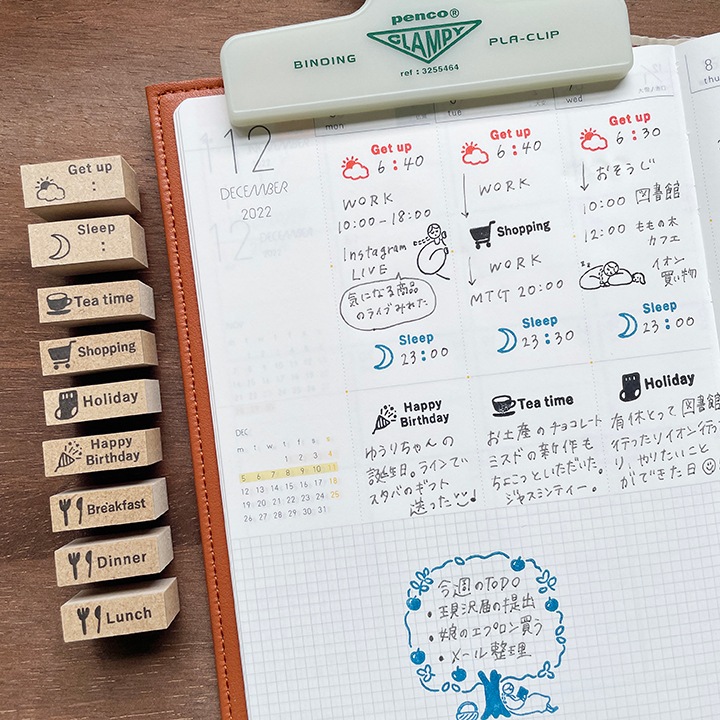 penco®
BINDING CLAMPY PLA-CLIP
ref : 3255464
Get up
:
Sleep
:
Tea time
Shopping
Holiday
Happy
Birthday
Breakfast
Dinner
Lunch
12
DECEMBER
2022
mon
Get up
6:40
WORK
10:00-18:00
Instagram
LIVE
気になる商品
のライブみれた
Sleep
23:00
Happy
Birthday
ゆうりちゃんの
誕生日。ラインで
スタバのギフト
送った
tue
Get up
6:40
WORK
Shopping
WORK
MTG 20:00
Sleep
23:30
Tea time
お土産のチョコレート
ミスドの新作も
ちょこっといただいた。
ジャスミンティー。
7
wed
Get up
6:30
おそうじ
10:00 図書館
12:00 ももの木
カフェ
イオン
買い物
Sleep
23:00
Holiday
有休とって図書館
行ったりイオン行った
り、やりたいこと
ができた日
8
thu
DEC
m t w t f s s
1 2 3 4
5 6 7 8 9 10 11
12 13 14 15 16 17 18
19 20 21 22 23 24 25
26 27 28 29 30 31
今週のTODO
・現況届の提出
・娘のエプロン買う
・メール整理